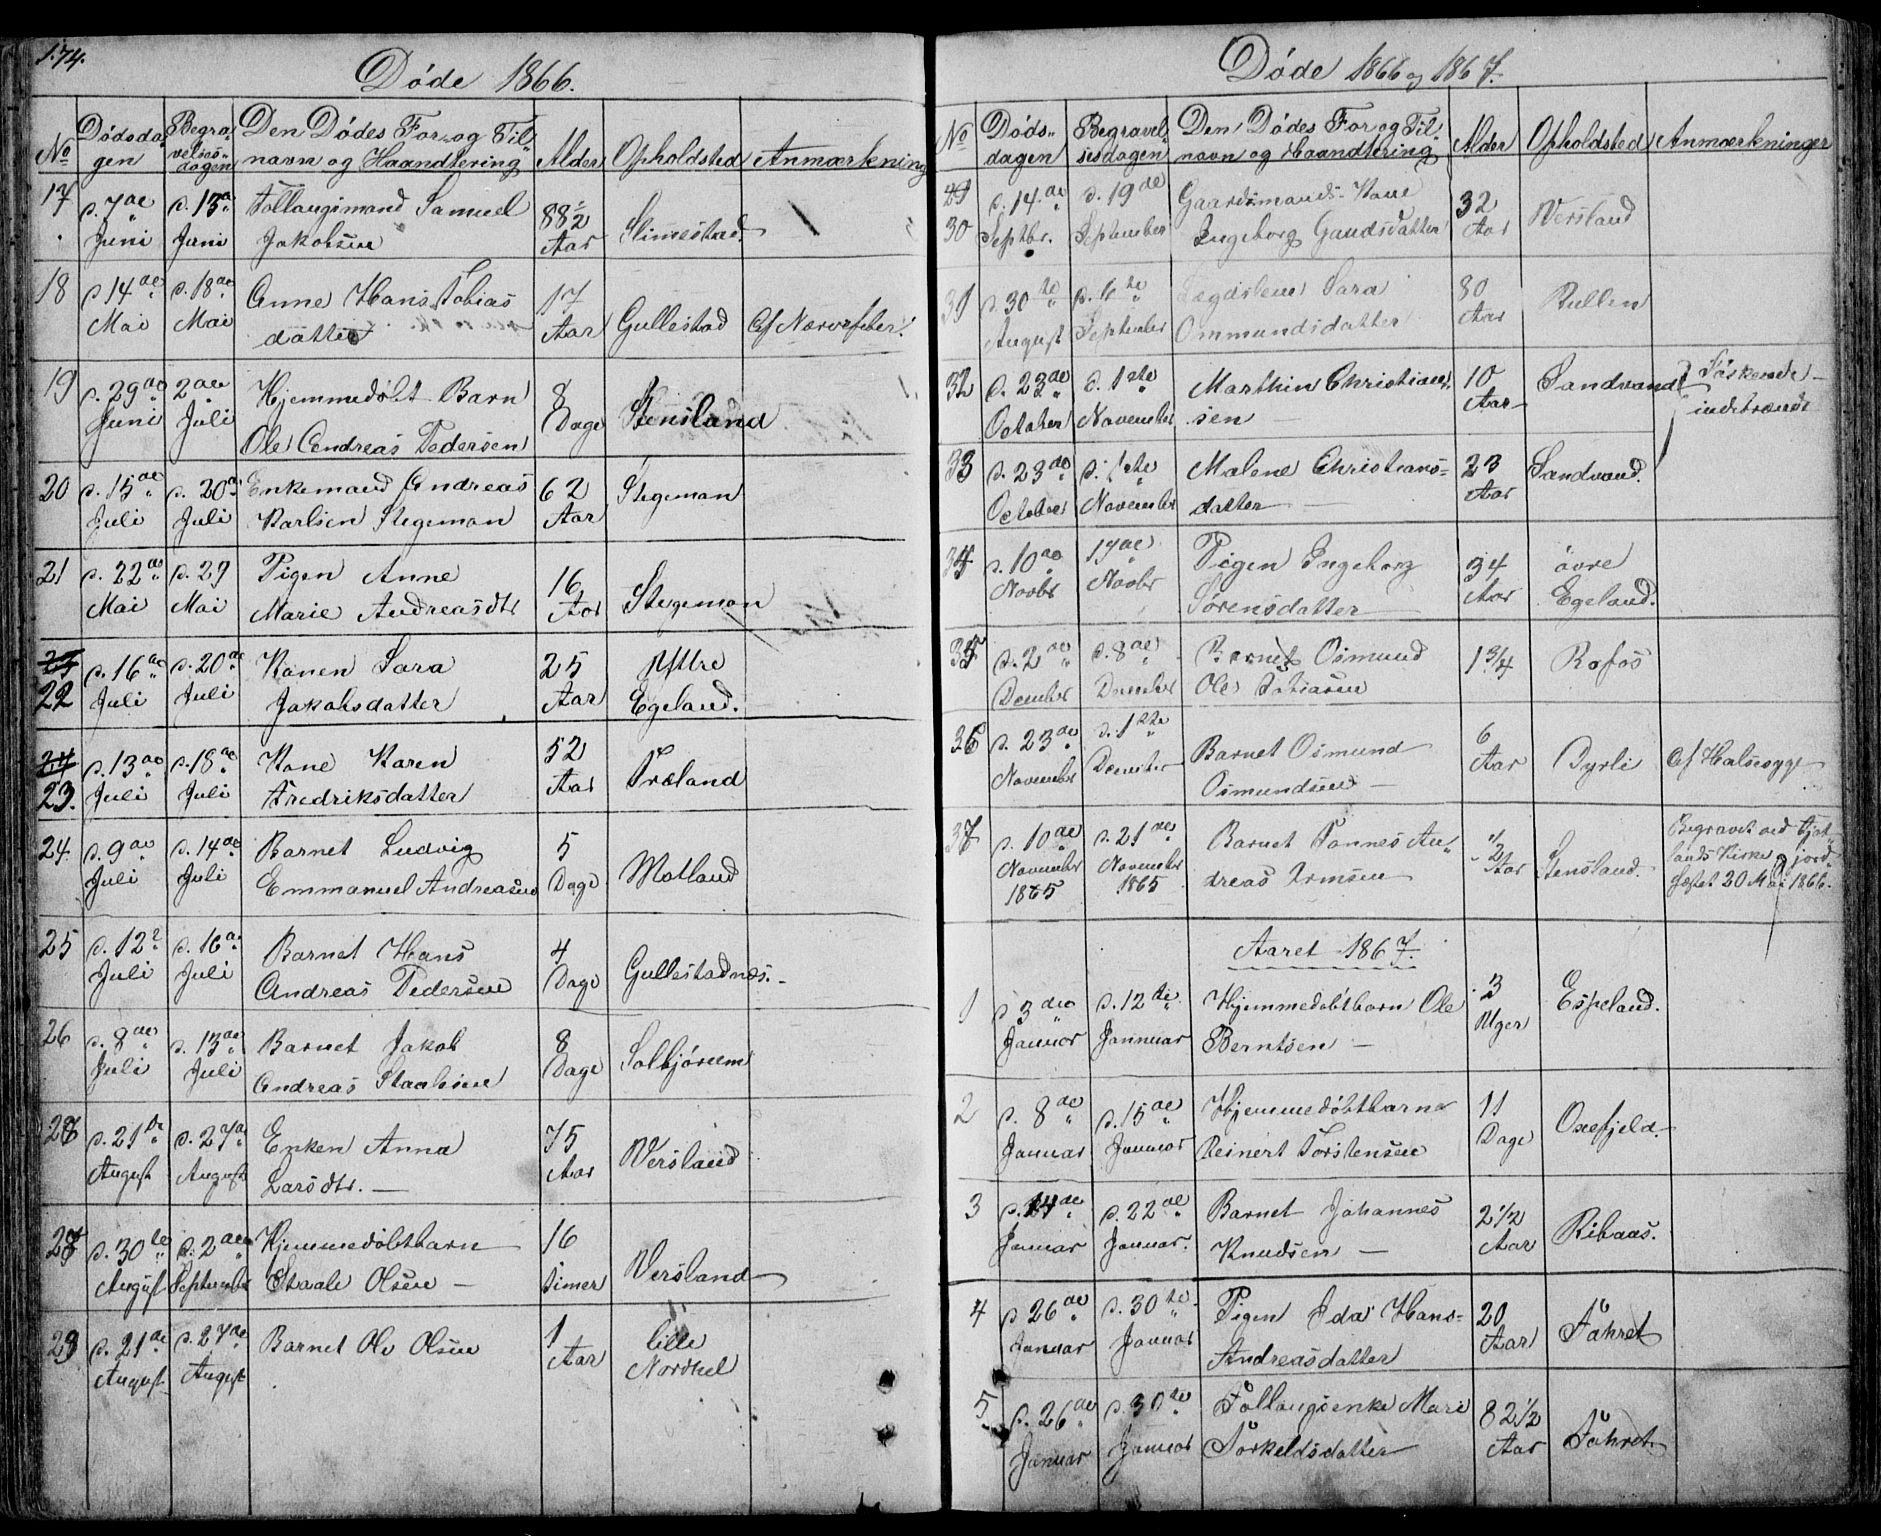 174.
Döde 1866.
No Dödsdagen Begravelsesdagen Den Dödes For- og Tilnavn og Haandtering Alder Opholdsted Anmærkning
17 d. 7de Juni d. 15de Juni Föllaugsmand Samuel Jakobsen 88 1/2 Aar Slimestad.
18 d. 14de Mai d. 18de Mai Anne Hans Tobias datter 17 Aar Gullestad Af Nervefeber.
19 d. 29de Juni 2den Juli Hjemmedöbt Barn Ole Andreas Pedersen 8 Dage Stensland
20 d. 15de Juli d. 20de Juli Enkemand Andreas Karlsen Stegeman 62 Aar Stegeman
21 d. 22de Mai d. 29 Mai Pigen Anne Marie Andreasdtr 16 Aar Stegeman
23 22 d. 16de Juli d. 20de Juli Konen Sara Jakobsdatter 25 Aar Yttre Egeland.
24 23. d. 13de Juli d. 18de Juli Kone Karen Fredriksdatter 52 Aar Træland
24. d. 9de Juli d. 14de Juli Barnet Ludvig Emmanuel Andreasen 5 Dage Motland
25 d. 12te Juli d. 16de Juli Barnet Hans Andreas Pedersen 4 Dage Gullestadnes.
26 d. 8de Juli d. 13de Juli Barnet Jakob Andreas Staalesen 8 Dage Solbjörnem
27 d. 21de August d. 27de August Enken Anna Larsdtr. 75 Aar Versland
28 d. 30te August d. 2den September Hjemmedöbtbarn Staale Olsen 16 Timer Versland
29 d. 21de August d. 27de August Barnet Ole Olsen 1 Aar Lille Nordhel
Döde 1866 og 1867.
No Döds-dagen Begravelsesdagen Den Dödes For og Tilnavn og Haandtering Alder Opholdsted Anmærkninger
30 d. 14de Septbr. d. 19de September Gaardsmands-Kone Ingeborg Gaudsdatter 32 Aar Versland
31 d. 30te August d. 6te September Lægdslem Sara Ommundsdatter 80 Aar Rullen
32 d. 23de October d. 1ste November Marthin Christiansen 10 Aar Sandvand Söskende - indebrændt
33 d. 23de October d. 1ste November Malene Christians-datter 23 Aar Sandvand.
34 d. 10de Novbr 17de Novbr Pigen Ingeborg Sörensdatter 34 Aar övre Egeland.
35 d. 2de December d. 8de December Barnet Osmund Ole Tobiasen 1 3/4 Rofos
36 d. 23de November d. 1ste December Barnet Osmund Osmundsen 6 Aar Dyrli Af Halssyge
37 d. 10de November 1865 d. 21de November 1865 Barnet Tönnes Andreas 1/2 Aar Stensland. Begravet ved lands Kirke og jordfæstet 20 Mai 1866.
Aaret 1867.
1 d. 3die Januar d. 12te Januar Hjemmedöbtbarn Ole Berntsen 3 Uger Espeland.
2 d. 8de Januar d. 15de Januar Hjemmedöbtbarn Reinert Torstensen 11 Dage Oxefjeld.
3 d. 14de Januar d. 22de Januar. Barnet Johannes Knudsen 2 1/2 Aar Ribaas.
4 d. 26de Januar d. 30te Januar Pigen Ida Hans-Andreasdatter 20 Aar Föhret
5. d. 26de Januar d. 30te Januar Föllaugsenke Mari Torkeldsdatter 82 1/2 Aar Föhret